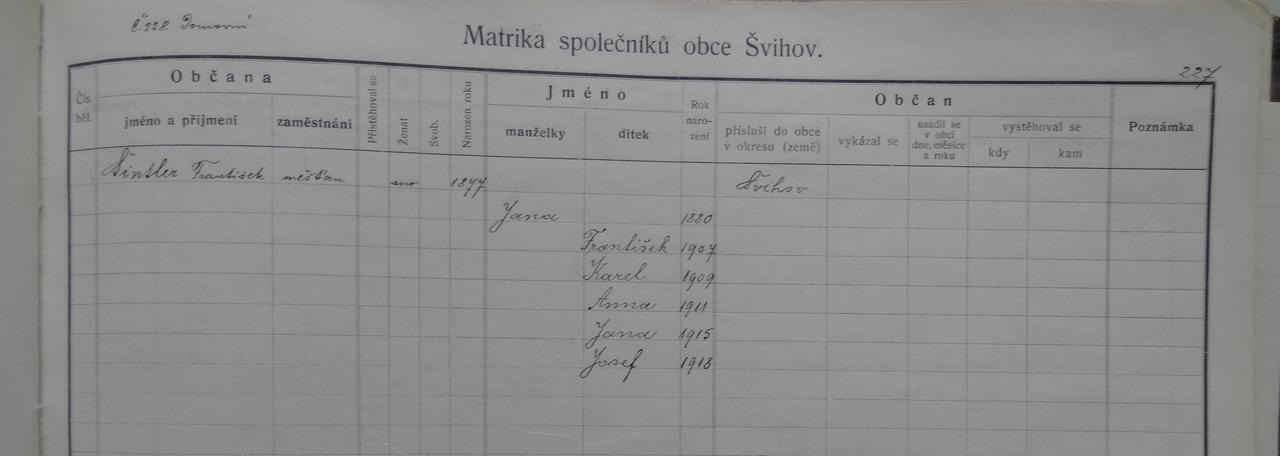 Č. 228. Domovní
Matrika společníků obce Švihov.
227
Čís. běž.
Občana
jméno a příjmení
zaměstnání
Přistěhoval se
Ženat
Svob.
Narozen roku
Jméno
manželky
dítek
Rok naro- zení
Občan
přísluší do obce v okresu (země)
vykázal se
usadil se v obci dne, měsíce a roku
vystěhoval se
kdy
kam
Poznámka
Šintler František měšťan ano 1877 Švihov
Jana 1880
František 1907
Karel 1909
Anna 1911
Jana 1915
Josef 1918